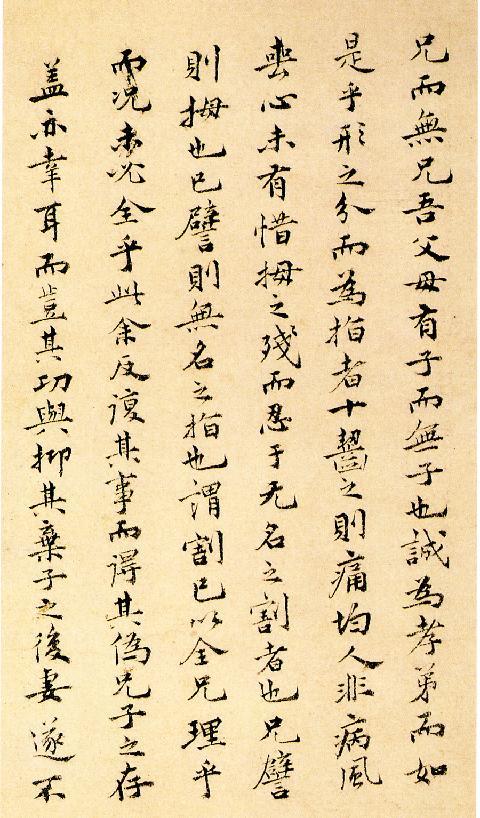 兄而無兄吾父母有子而無子也誠為孝弟而如
是乎形之分而為指者十齧之則痛均人非病風
喪心未有惜拇之殘而忍于无名之割者也兄譬
則拇也已譬則無名之指也謂割已以全兄理乎
而况未必全乎此余反復其事而得其偽兄子之存
盖亦幸耳而豈其功與抑其棄子之後妻遂不